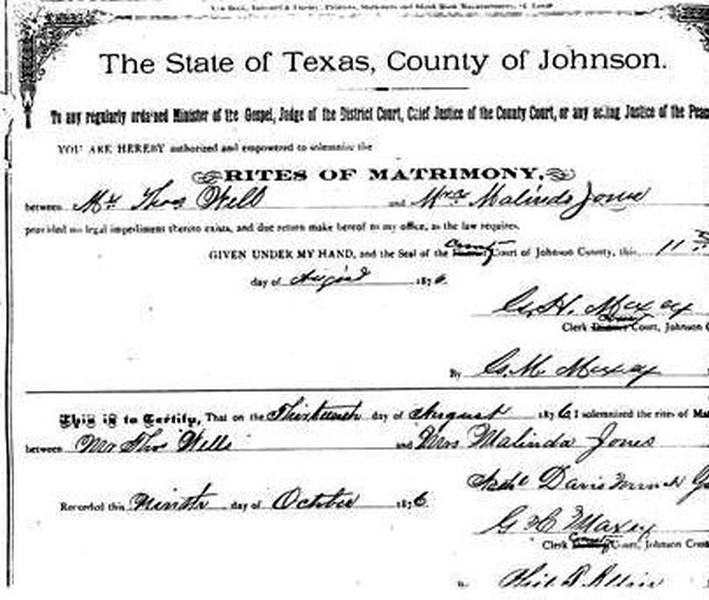 The State of Texas, County of Johnson.
To any regularly ordained Minister of the Gospel, Judge of the District Court, Chief Justice of the County Court, or any acting Justice of the Peac
YOU ARE HEREBY authorized and empowered to solemnize the
RITES OF MATRIMONY,
between Mr. Thos Well and Mrs Malinda Jones
provided no legal impediment thereto exists, and due return make hereof to my office, as the law requires.
GIVEN UNDER MY HAND, and the Seal of the County Court of Johnson County, this 11
day of August 1876
G. H. Maxey
Clerk County Court, Johnson C
By G. M. Maxey
This is to Certify, That on the Thirteenth day of August 1876 I solemnized the rites of Mat
between Mr Thos Wells and Mrs Malinda Jones
Davis
Recorded this Ninth day of October 1876
G H Maxey
Clerk County Court, Johnson Coun